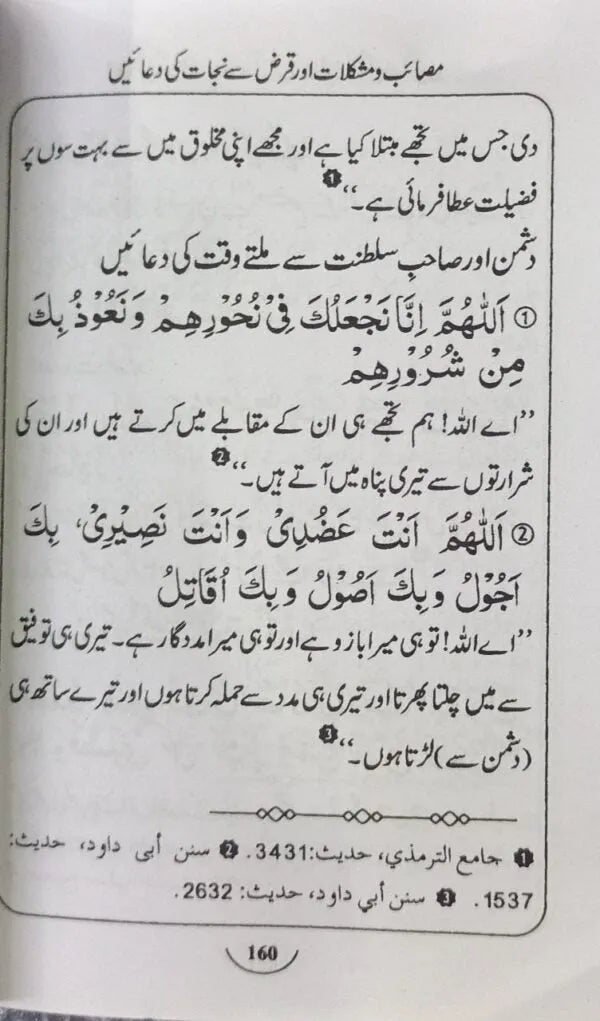 مصائب و مشکلات اور قرض سے نجات کی دعائیں
دی جس میں تجھے مبتلا کیا ہے اور مجھے اپنی مخلوق میں سے بہت سوں پر
فضیلت عطا فرمائی ہے۔‘‘ ❶
دشمن اور صاحبِ سلطنت سے ملتے وقت کی دعائیں
① اَللّٰهُمَّ اِنَّا نَجْعَلُكَ فِيْ نُحُوْرِهِمْ وَنَعُوْذُ بِكَ
مِنْ شُرُوْرِهِمْ
’’اے اللہ! ہم تجھے ہی ان کے مقابلے میں کرتے ہیں اور ان کی
شرارتوں سے تیری پناہ میں آتے ہیں۔‘‘ ❷
② اَللّٰهُمَّ اَنْتَ عَضُدِيْ وَاَنْتَ نَصِيْرِيْ، بِكَ
اَجُوْلُ وَبِكَ اَصُوْلُ وَبِكَ اُقَاتِلُ
’’اے اللہ! تو ہی میرا بازو ہے اور تو ہی میرا مددگار ہے۔ تیری ہی توفیق
سے میں چلتا پھرتا اور تیری ہی مدد سے حملہ کرتا ہوں اور تیرے ساتھ ہی
(دشمن سے) لڑتا ہوں۔‘‘ ❸
❶ جامع الترمذي، حديث:3431. ❷ سنن أبی داود، حديث:
1537. ❸ سنن أبي داود، حديث: 2632.
160